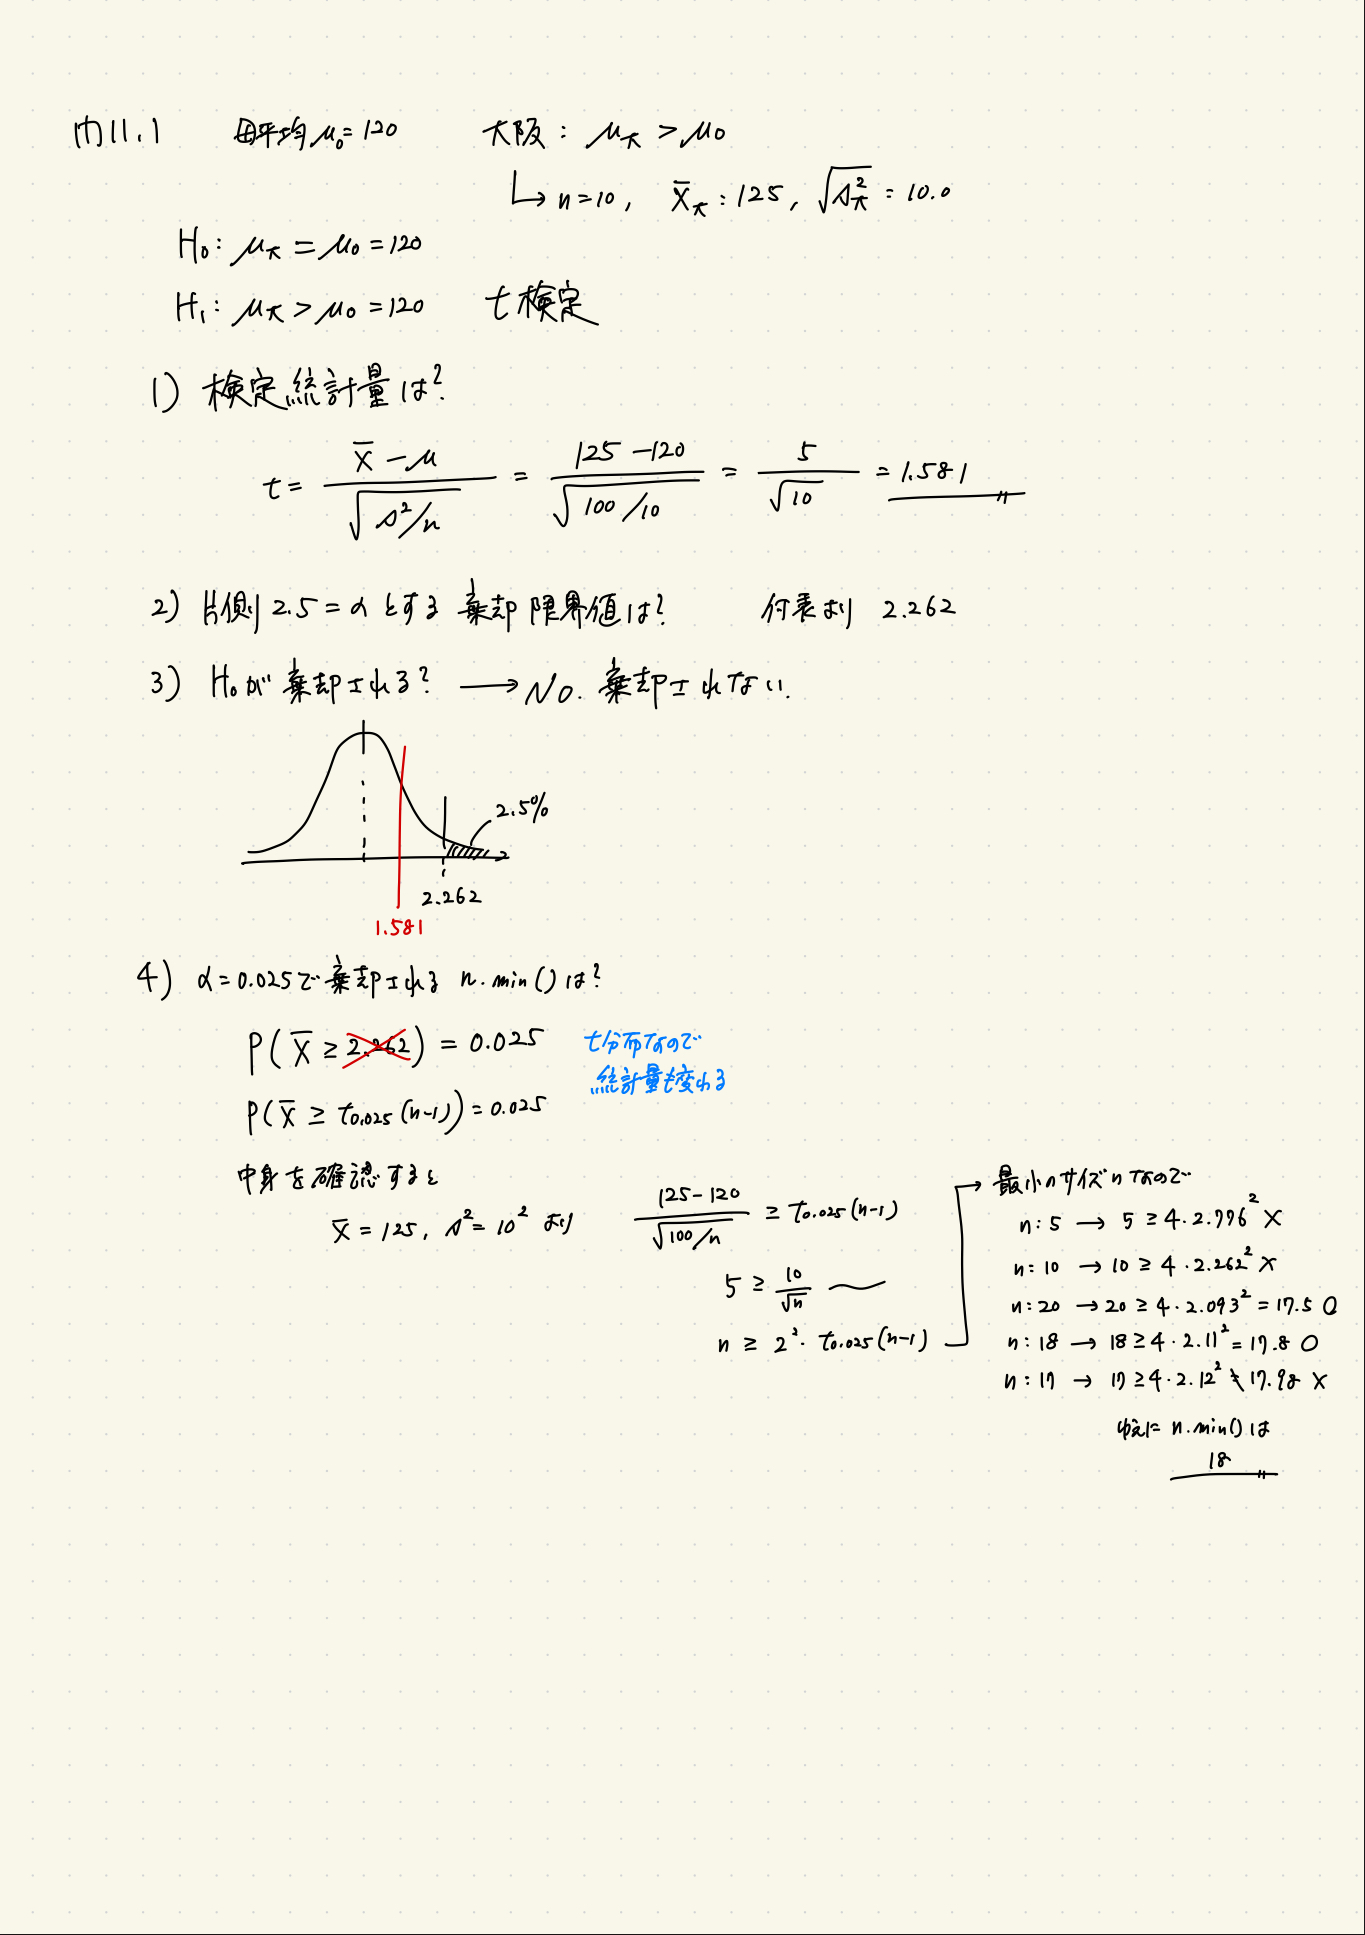 内11.1 母平均 μ₀=120 大阪: μ大 > μ₀
↳ n=10, X̄大: 125, √s²大 = 10.0
H₀: μ大 = μ₀ = 120
H₁: μ大 > μ₀ = 120 t検定
1) 検定統計量は?
t = (X̄ - μ)/√(s²/n) = (125-120)/√(100/10) = 5/√10 = 1.581
2) 片側 2.5 = α とする 棄却限界値は? 付表より 2.262
3) H₀が棄却される? → No. 棄却されない.
2.5%
2.262
1.581
4) α=0.025で棄却される n.min()は?
P(X̄ ≥ 2.262) = 0.025 t分布なので
統計量も変わる
P(X̄ ≥ t₀.₀₂₅(n-1)) = 0.025
中身を確認すると
X̄ = 125, s² = 10² より (125-120)/√(100/n) ≥ t₀.₀₂₅(n-1)
5 ≥ 10/√n 〜
n ≥ 2²・t₀.₀₂₅(n-1)
→ 最小のサイズnなので
n:5 → 5 ≥ 4・2.776² ×
n:10 → 10 ≥ 4・2.262² ×
n:20 → 20 ≥ 4・2.093² = 17.5 ○
n:18 → 18 ≥ 4・2.11² = 17.8 ○
n:17 → 17 ≥ 4・2.12² ≠ 17.98 ×
ゆえに n.min()は
18